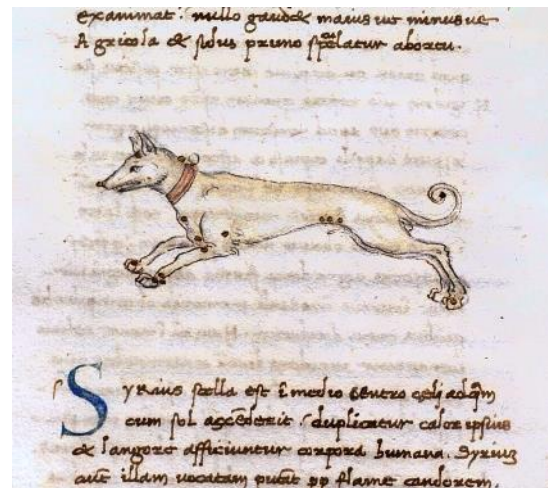 examinat. nullo gaudet maius ve minus ve
Agricola et sidus primo spelatur abortu.
Syrius stella est ī medio centro celi ad quem
cum sol ascēderit. duplicatur calor ipsius
et langore afficiuntur corpora humana. Syrius
autē illam vocatam putāt pp flame candorem.